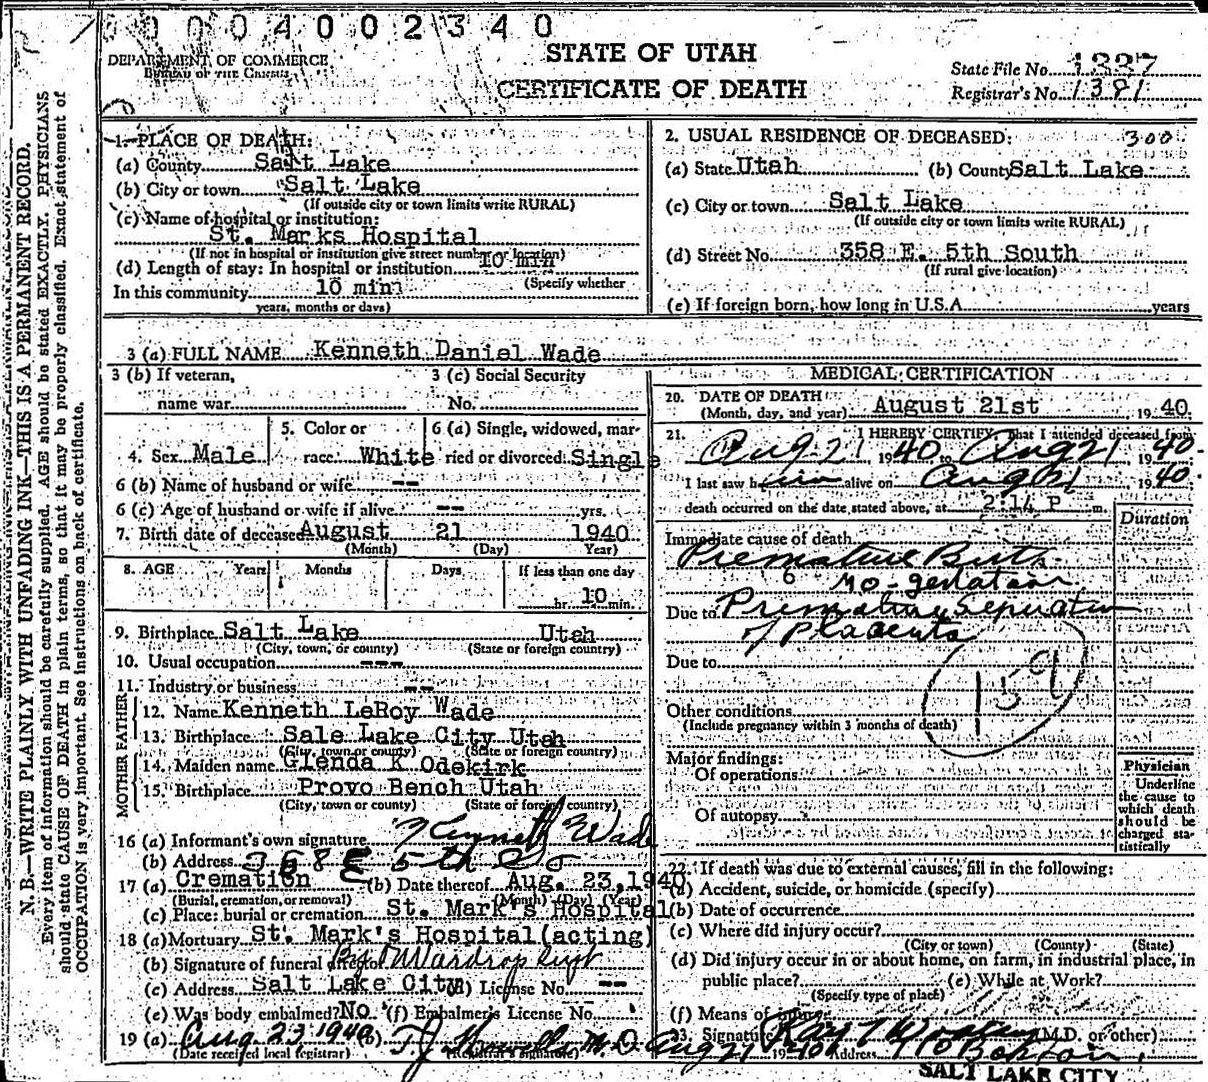 0004002340
DEPARTMENT OF COMMERCE
BUREAU OF THE CENSUS
STATE OF UTAH
CERTIFICATE OF DEATH
State File No. 1337
Registrar's No. 1381
N. B.—WRITE PLAINLY WITH UNFADING INK—THIS IS A PERMANENT RECORD.
Every item of information should be carefully supplied. AGE should be stated EXACTLY. PHYSICIANS
should state CAUSE OF DEATH in plain terms, so that it may be properly classified. Exact statement of
OCCUPATION is very important. See instructions on back of certificate.
1. PLACE OF DEATH:
(a) County Salt Lake
(b) City or town Salt Lake
(If outside city or town limits write RURAL)
(c) Name of hospital or institution:
St. Marks Hospital
(If not in hospital or institution give street number or location)
(d) Length of stay: In hospital or institution 10 min
(Specify whether
In this community 10 min
years, months or days)
2. USUAL RESIDENCE OF DECEASED: 300
(a) State Utah (b) County Salt Lake
(c) City or town Salt Lake
(If outside city or town limits write RURAL)
(d) Street No. 358 E. 5th South
(If rural give location)
(e) If foreign born, how long in U.S.A. years
3 (a) FULL NAME Kenneth Daniel Wade
3 (b) If veteran, 3 (c) Social Security
name war No.
4. Sex Male 5. Color or race White 6 (a) Single, widowed, married or divorced: Single
6 (b) Name of husband or wife --
6 (c) Age of husband or wife if alive -- yrs.
7. Birth date of deceased August 21 1940
(Month) (Day) Year)
8. AGE Years Months Days If less than one day
hr. 10 min.
9. Birthplace Salt Lake Utah
(City, town, or county) (State or foreign country)
10. Usual occupation ---
11. Industry or business --
FATHER
12. Name Kenneth LeRoy Wade
13. Birthplace Sale Lake City Utah
(City, town or county) (State or foreign country)
MOTHER
14. Maiden name Glenda K Odekirk
15. Birthplace Provo Bench Utah
(City, town or county) (State or foreign country)
16 (a) Informant's own signature Kenneth Wade
(b) Address 368 E 5th So
17 (a) Cremation (b) Date thereof Aug. 23, 1940
(Burial, cremation, or removal) (Month) (Day) (Year)
(c) Place: burial or cremation St. Mark's Hospital
18 (a) Mortuary St. Mark's Hospital (acting)
(b) Signature of funeral director By D Wardrop Supt
(c) Address Salt Lake City (d) License No. --
(e) Was body embalmed? No (f) Embalmer's License No.
19 (a) Aug. 23, 1940 (b) T J Howells M.D.
(Date received local registrar) (Registrar's signature)
MEDICAL CERTIFICATION
20. DATE OF DEATH
(Month, day, and year) August 21st 1940.
21. I HEREBY CERTIFY, That I attended deceased from
Aug 21 1940 to Aug 21 1940.
I last saw him alive on Aug 21 1940.
death occurred on the date stated above, at 2:14 P m.
Duration
Immediate cause of death
Premature Birth
6 mo-gestation
Due to Premature Separation
of Placenta
Due to
159
Other conditions
(Include pregnancy within 3 months of death)
Major findings:
Of operations
Of autopsy
Physician
Underline
the cause to
which death
should be
charged sta-
tistically
22. If death was due to external causes, fill in the following:
(a) Accident, suicide, or homicide (specify)
(b) Date of occurrence
(c) Where did injury occur?
(City or town) (County) (State)
(d) Did injury occur in or about home, on farm, in industrial place, in
public place? (e) While at Work?
(Specify type of place)
(f) Means of injury
23. Signature Ray T Woolsey (M.D. or other)
Aug 21 1940 Address
SALT LAKE CITY